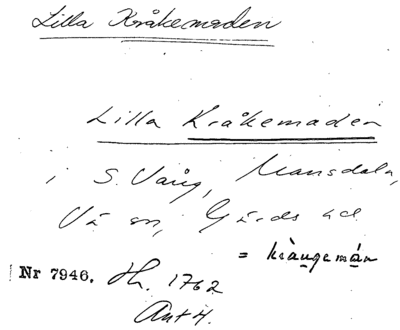 Lilla Kråkemaden
Lilla Kråkemaden
i S. Vång, Mansdala,
Vä sn, Gärds hd
= kràngemán
Nr 7946. Hh. 1762
Ant H.